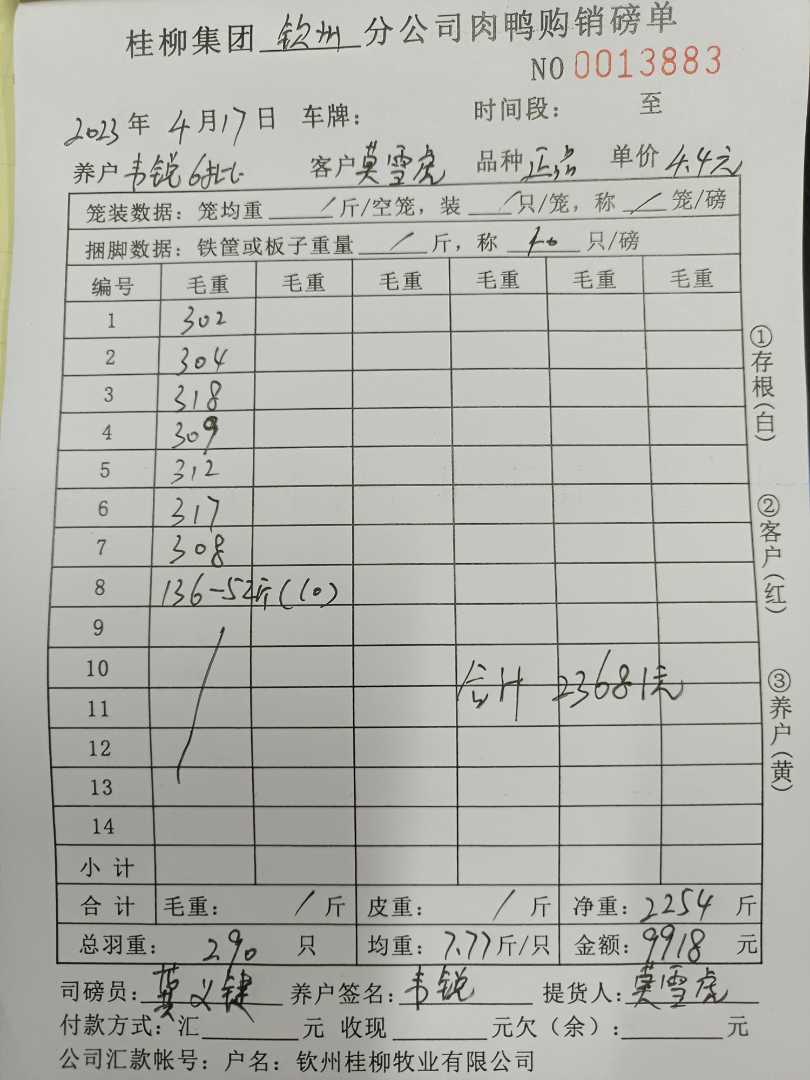 桂柳集团 钦州 分公司肉鸭购销磅单
NO 0013883
2023年 4月17日 车牌： 时间段： 至
养户 韦锐6批 客户 莫雪虎 品种 正品 单价 4.4元
笼装数据：笼均重 / 斤/空笼，装 / 只/笼，称 / 笼/磅
捆脚数据：铁筐或板子重量 / 斤，称 40 只/磅
编号 毛重 毛重 毛重 毛重 毛重 毛重
1 302
2 304
3 318
4 309
5 312
6 317
7 308
8 136-52斤(10)
9
10
合计 23681元
11
12
13
14
小计
合计 毛重： / 斤 皮重： / 斤 净重：2254 斤
总羽重： 290 只 均重：7.77斤/只 金额：9918 元
司磅员：莫义键 养户签名：韦锐 提货人：莫雪虎
付款方式：汇 元 收现 元欠（余）： 元
公司汇款帐号：户名：钦州桂柳牧业有限公司
①存根(白)
②客户(红)
③养户(黄)